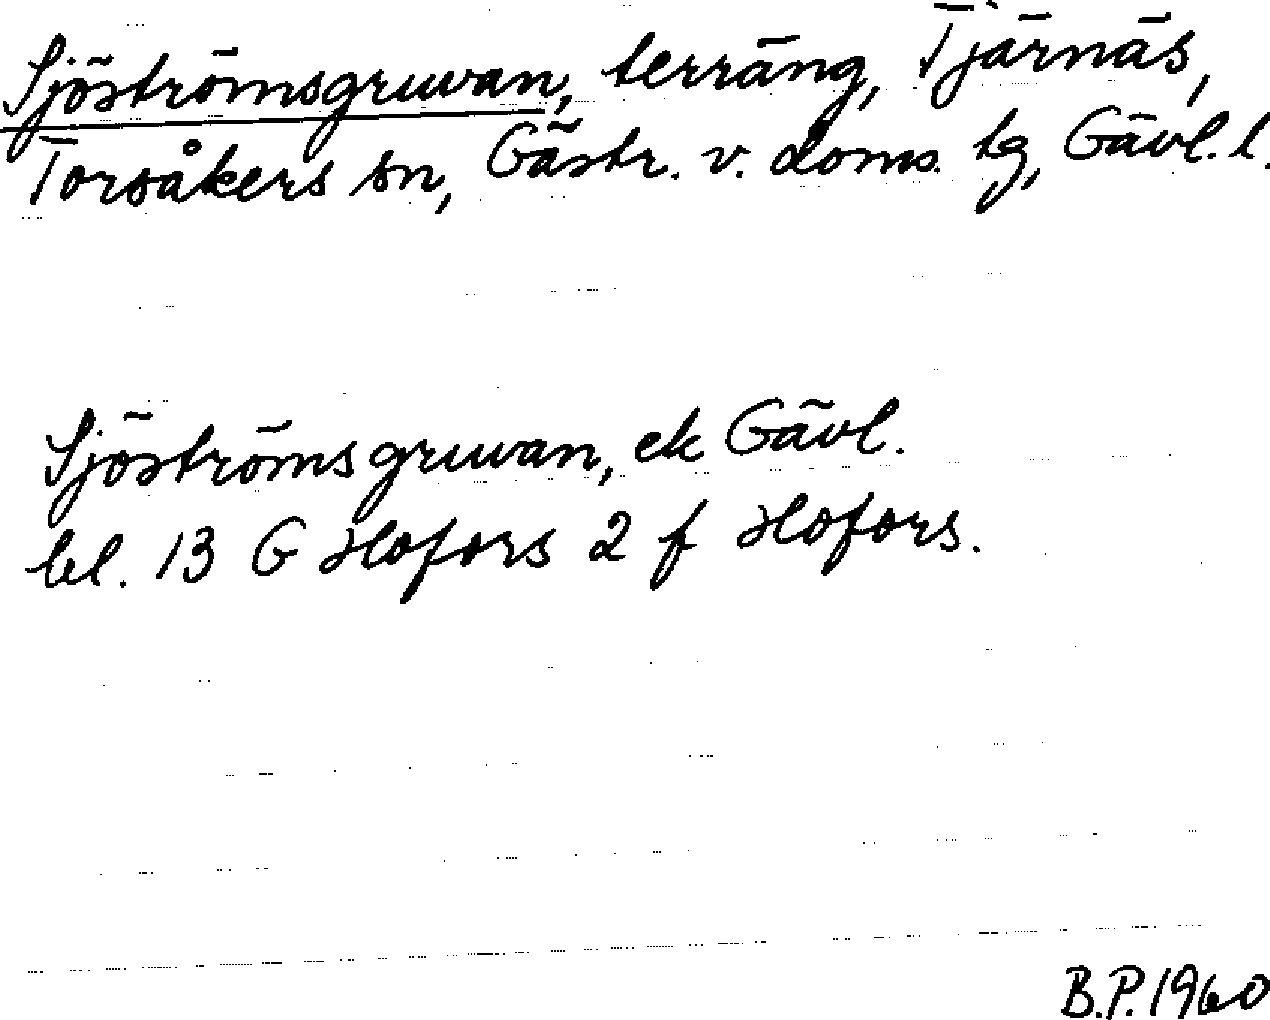 Sjöströmsgruvan, terräng, Tjärnäs,
Torsåkers sn, Gästr. v. doms. tg, Gävl. l.
Sjöströmsgruvan, ek Gävl.
bl. 13 G Hofors 2 f Hofors.
B.P. 1960